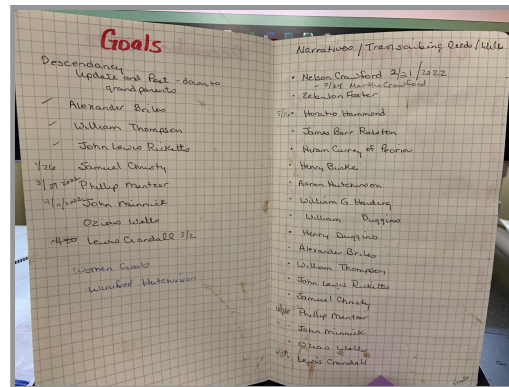 Goals
Descendancy
Update and Post - down to
grandparents
Alexander Briles
William Thompson
John Lewis Ricketts
1/26 Samuel Christy
3/27 2022 Phillip Mentzer
4/11/2022 John Minnick
Ozias Wells
Lewis Crandall 5/2
Women Goals
Winifred Hutchinson
Narratives / Transcribing Deeds/Wills
• Nelson Crawford 2/21/2022
- 3/24 Martha Crawford
• Zebulon Foster
• Horatio Hammond
• James Barr Ralston
• Hiram Currey of Peoria
• Henry Burke
• Aaron Hutchinson
• William G. Harding
• William Duggins
• Henry Duggins
• Alexander Briles
• William Thompson
• John Lewis Ricketts
• Samuel Christy
• Phillip Mentzer
• John Minnick
• Ozias Wells
• Lewis Crandall